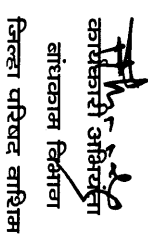 कार्यकारी अभियंता
बांधकाम विभाग
जिल्हा परिषद वाशिम